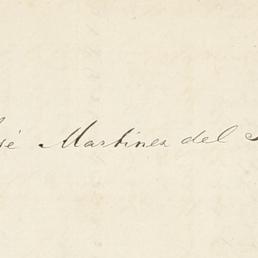 sé Martinez del